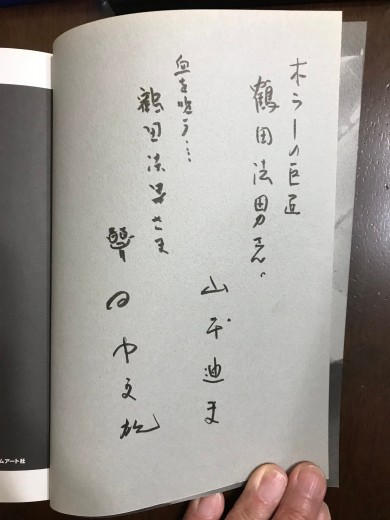 ホラーの巨匠
鶴田法男さん。
山本迪夫
血を吸う…
鶴田法男さま
田中文雄
ムアート社